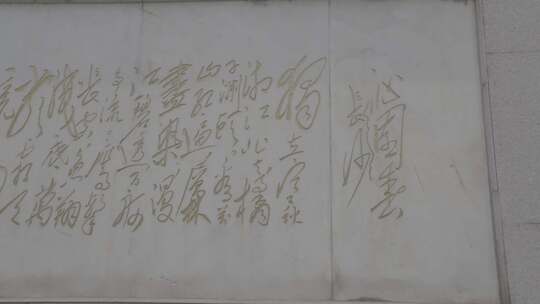 沁园春
长沙
独立寒秋
湘江北去橘
子洲头看万
山红遍层林
尽染漫
江碧透百舸
争流鹰击
长空鱼翔
浅底万